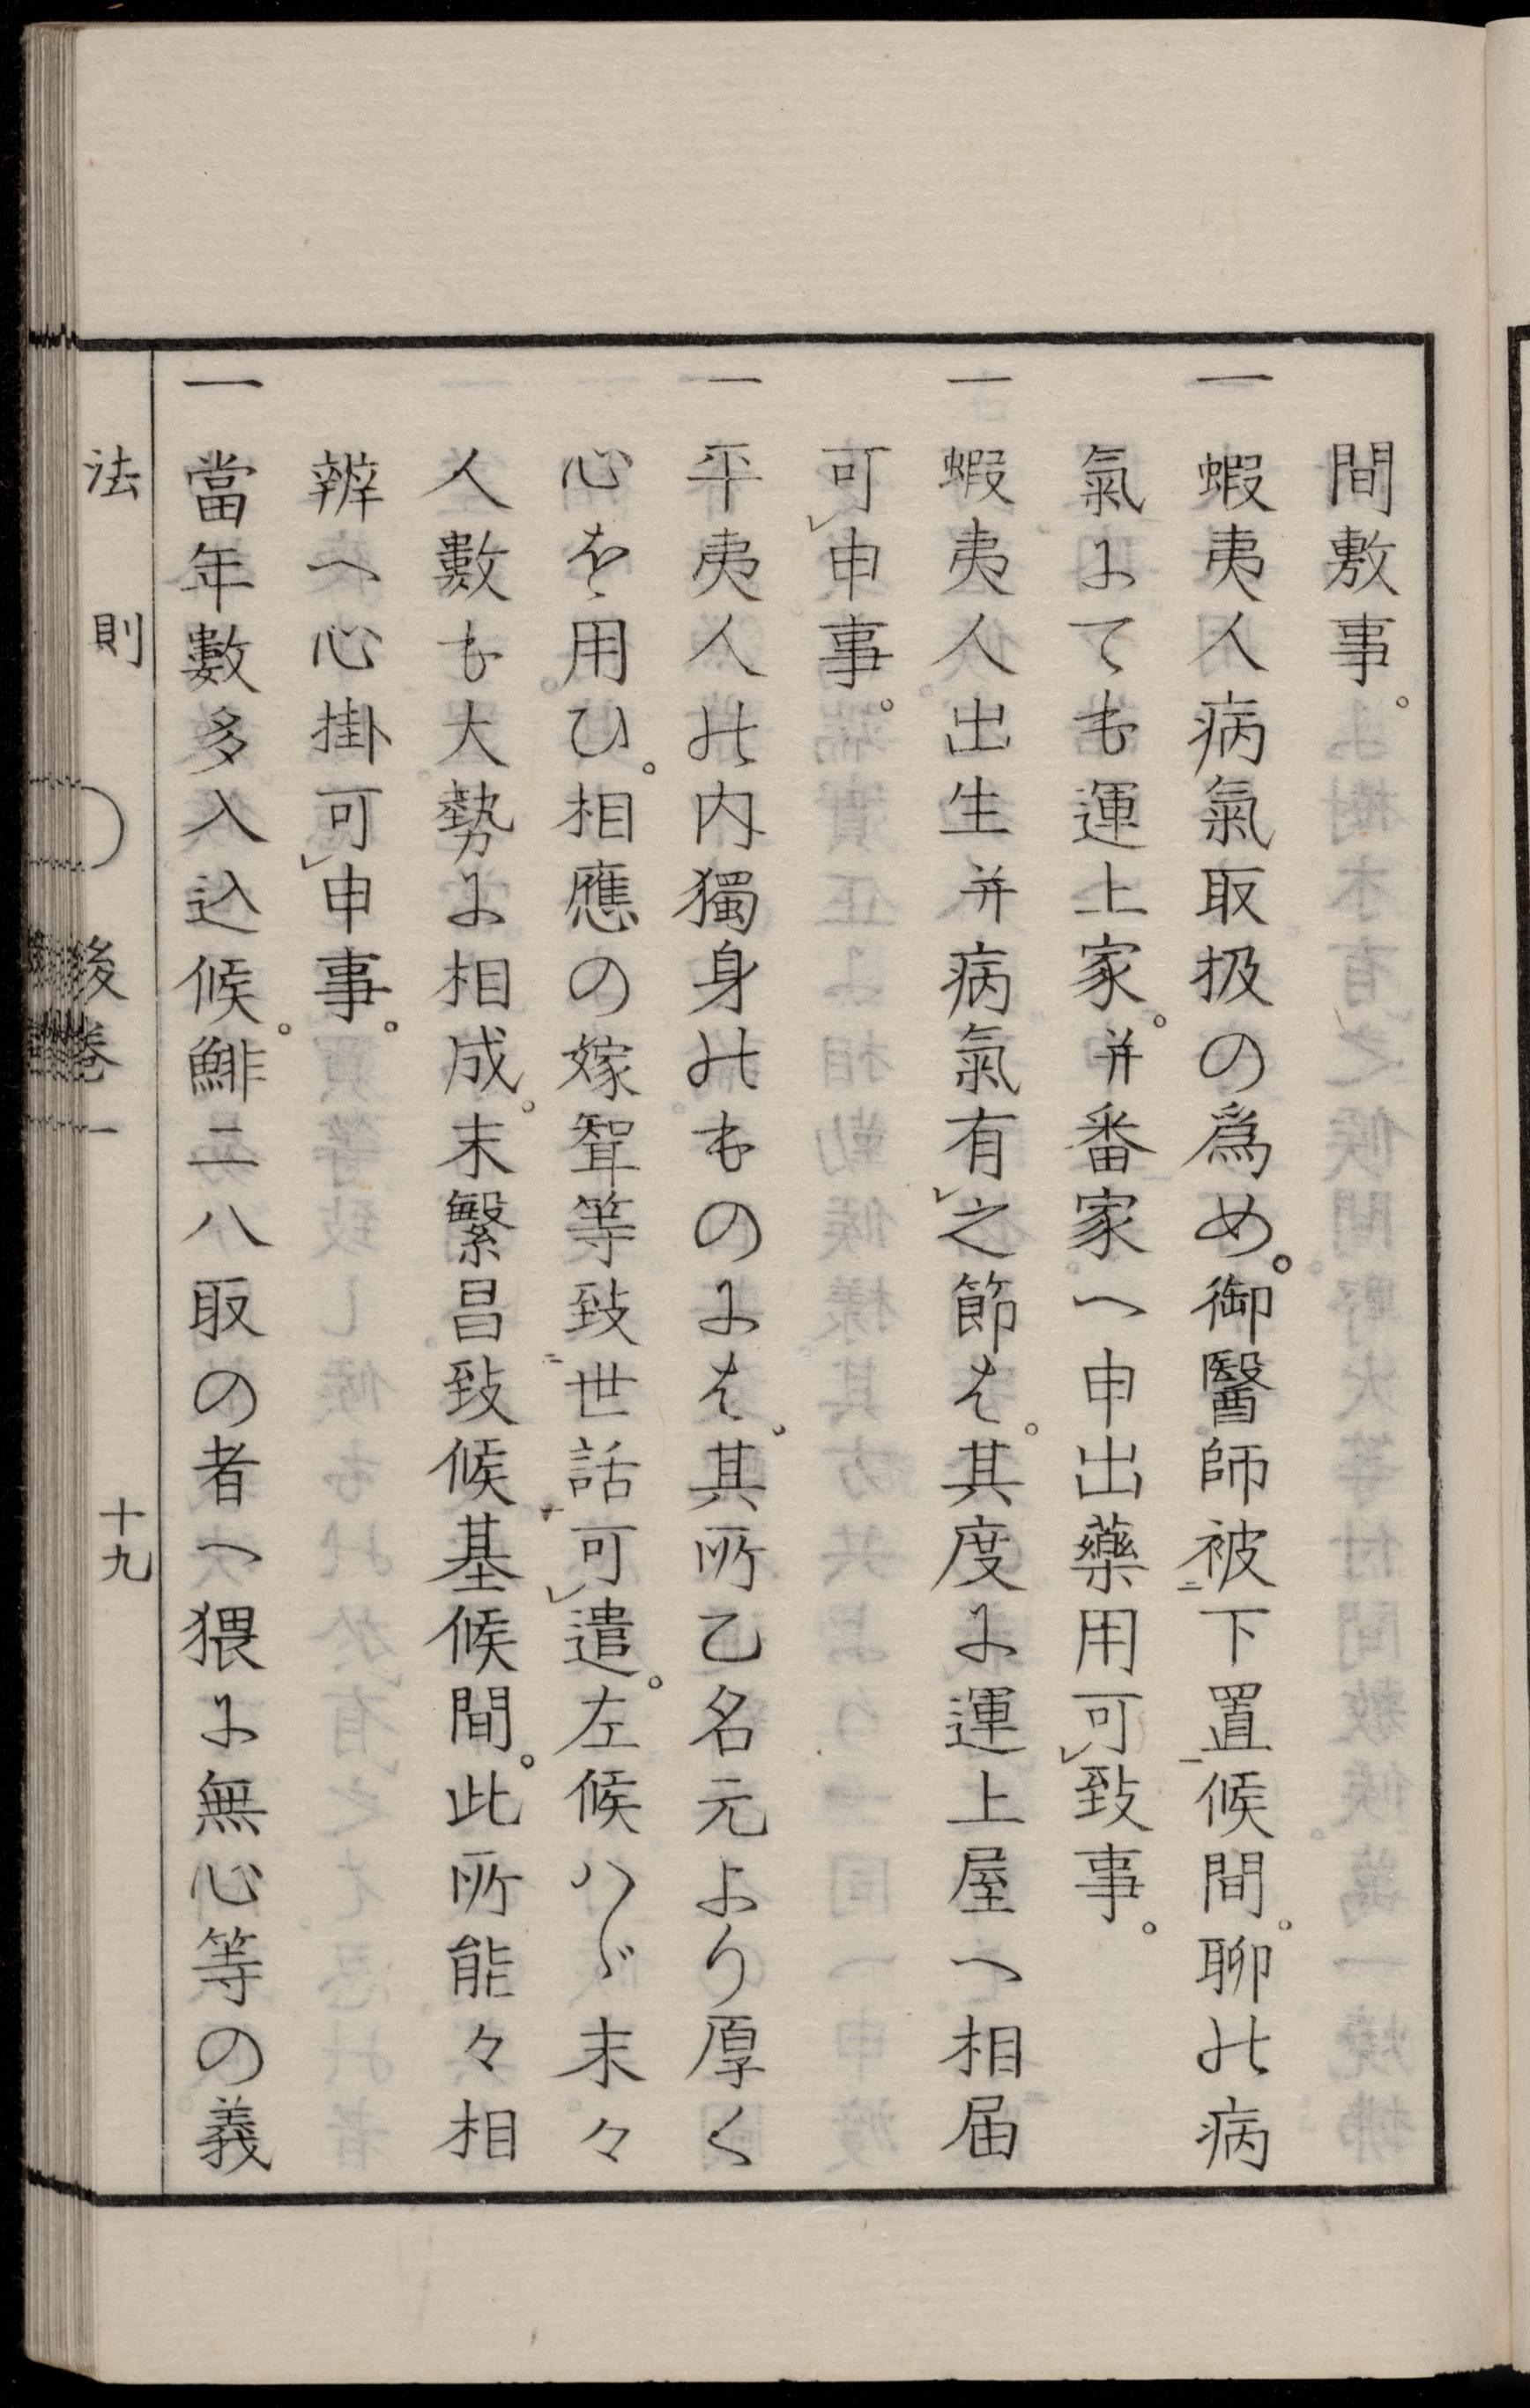 間敷事。
一 蝦夷人病氣取扱の爲め。御醫師被㆓下置㆒候間。聊の病
氣にても運上家。幷番家へ申出藥用可㆑致事。
一 蝦夷人出生幷病氣有㆑之節は。其度に運上屋へ相届
可㆑申事。
一 平夷人の内獨身のものには、其所乙名元より厚く
心を用ひ。相應の嫁聟等致㆓世話㆒可㆑遣。左候ハヾ末々
人數も大勢に相成。末繫昌致候基候間。此所能々相
辨へ心掛可㆑申事。
一 當年數多入込候。鯡二八取の者へ猥に無心等の義
法則 後卷一 十九